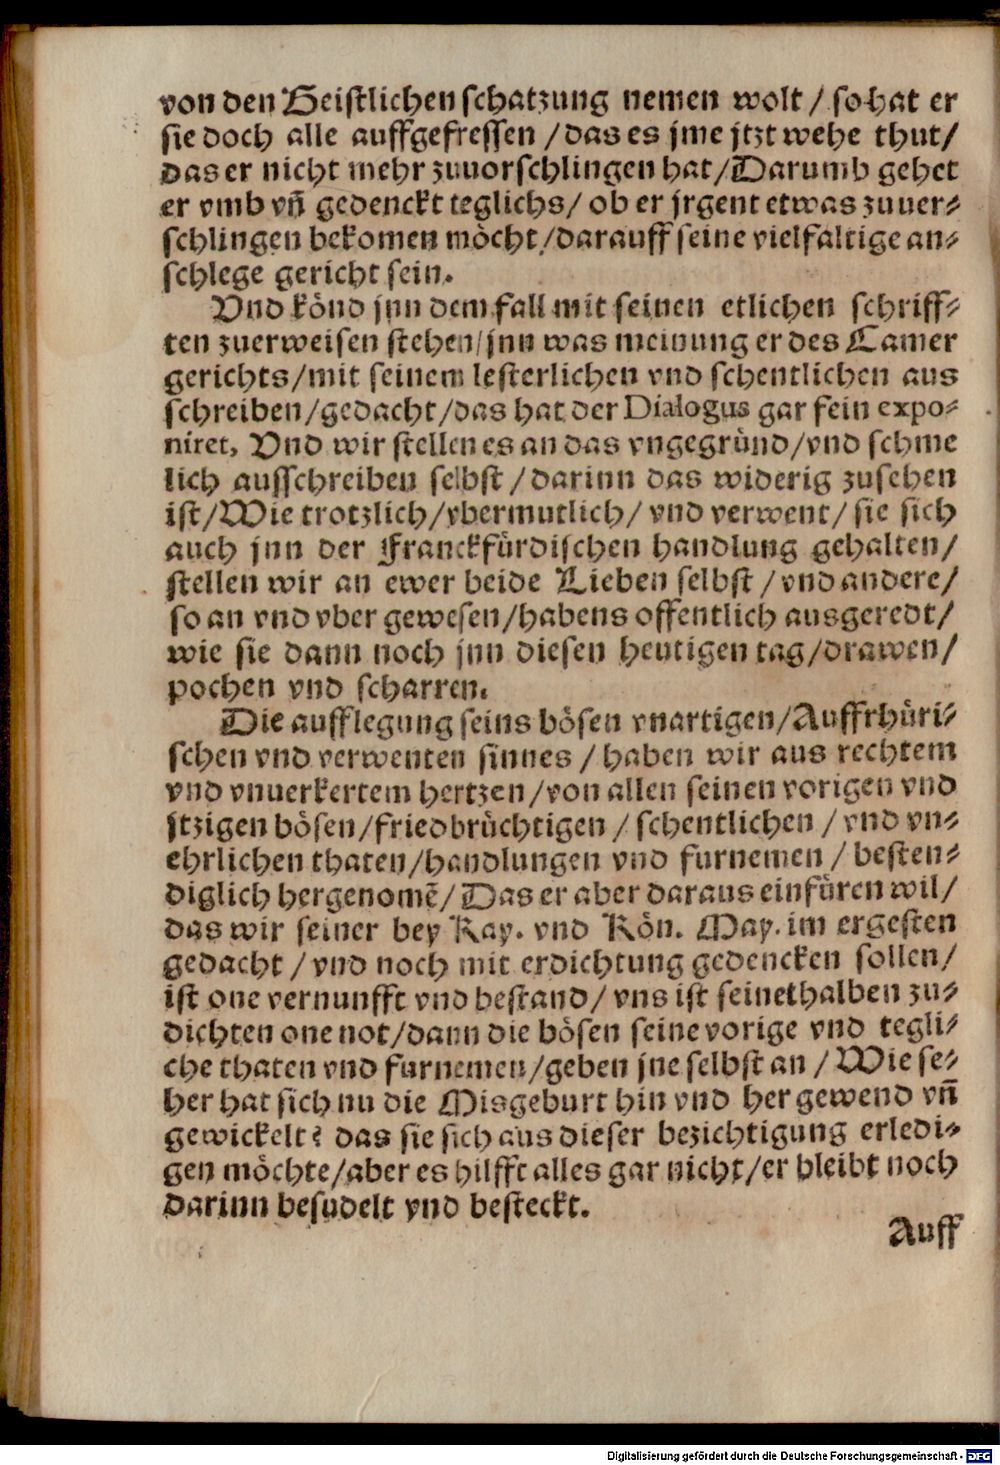 von den Geistlichen schatzung nemen wolt / so hat er
sie doch alle auffgefressen / das es jme jtzt wehe thut/
das er nicht mehr zuuorschlingen hat/Darumb gehet
er vmb vn̄ gedenckt teglichs/ ob er jrgent etwas zuuer⸗
schlingen bekomen möcht/darauff seine vielfaltige an⸗
schlege gericht sein.
Vnd könd jnn dem fall mit seinen etlichen schriff⸗
ten zuerweisen stehen/jnn was meinung er des Camer
gerichts/mit seinem lesterlichen vnd schentlichen aus
schreiben/gedacht/das hat der Dialogus gar fein expo⸗
niret, Vnd wir stellen es an das vngegründ/vnd schme
lich ausschreiben selbst / darinn das widerig zusehen
ist/Wie trotzlich/vbermutlich/ vnd verwent/ sie sich
auch jnn der Franckfürdischen handlung gehalten/
stellen wir an ewer beide Lieben selbst / vnd andere/
so an vnd vber gewesen/habens offentlich ausgeredt/
wie sie dann noch jnn diesen heutigen tag/drawen/
pochen vnd scharren.
Die aufflegung seins bösen vnartigen/Auffrhüri⸗
schen vnd verwenten sinnes / haben wir aus rechtem
vnd vnuerkertem hertzen/von allen seinen vorigen vnd
jtzigen bösen/friedbrüchtigen / schentlichen / vnd vn⸗
ehrlichen thaten/handlungen vnd furnemen / besten⸗
diglich hergenomē/ Das er aber daraus einfüren wil/
das wir seiner bey Kay. vnd Kön. May. im ergesten
gedacht / vnd noch mit erdichtung gedencken sollen/
ist one vernunfft vnd bestand/ vns ist seinethalben zu⸗
dichten one not/dann die bösen seine vorige vnd tegli⸗
che thaten vnd furnemen/geben jne selbst an / Wie se⸗
her hat sich nu die Misgeburt hin vnd her gewend vn̄
gewickelt? das sie sich aus dieser bezichtigung erledi⸗
gen möchte/aber es hilfft alles gar nicht/er bleibt noch
darinn besudelt vnd besteckt.
Auff
Digitalisierung gefördert durch die Deutsche Forschungsgemeinschaft - DFG